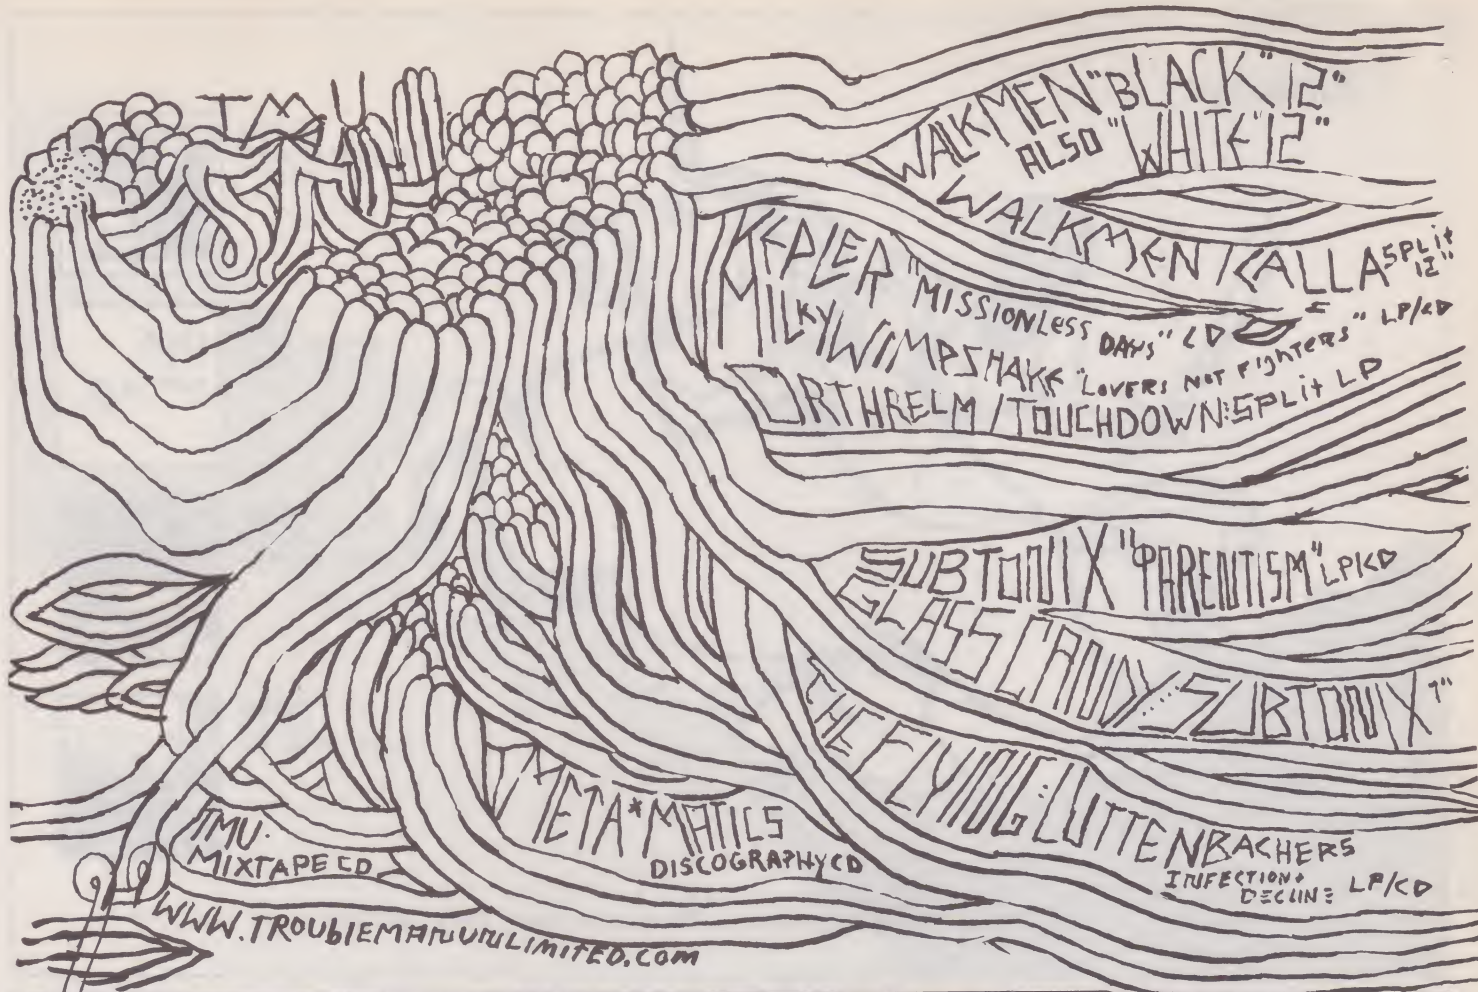 TMU
WALKMEN "BLACK" 12"
ALSO "WHITE" 12"
WALKMEN/CALLA SPLIT 12"
KEPLER "MISSIONLESS DAYS" CD
MILKY WIMPSHAKE "LOVERS NOT FIGHTERS" LP/CD
ORTHRELM/TOUCHDOWN: SPLIT LP
SUBTONIX "PARENTISM" LP/CD
GLASS CANDY/SUBTONIX 7"
THE FLYING LUTTENBACHERS
INFECTION +
DECLINE LP/CD
META*MATICS
DISCOGRAPHY CD
TMU.
MIXTAPE CD
WWW.TROUBLEMANUNLIMITED.COM